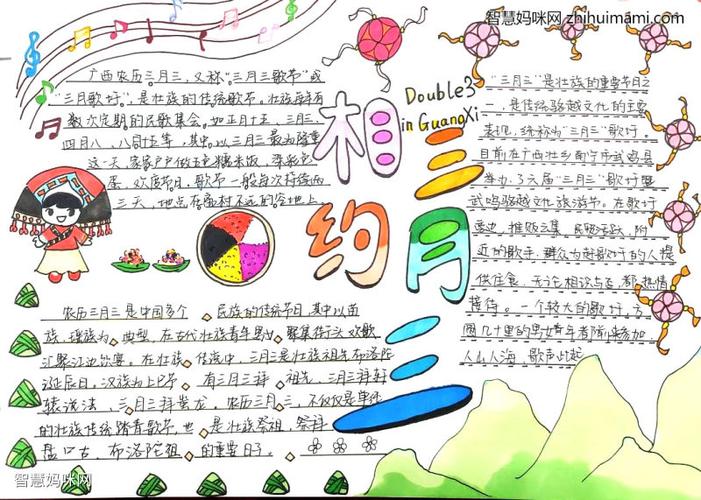 智慧妈咪网 zhihuimami.com
相约
三月三
Double3
in GuangXi
广西农历三月三，又称“三月三歌节”或
“三月歌圩”，是壮族的传统歌节。壮族每年有
数次定期的民歌集会。如正月十五、三月三、
四月八、八月十五等，其中以三月三最为隆重
这一天，家家户户做五色糯米饭，染彩色
蛋，欢度节日，歌节一般每次持续两
三天，地点在离村不远的空地上
“三月三”是壮族的重要节日之
一，是传统骆越文化的主要
表现，统称为“三月三”歌圩。
目前在广西壮乡南宁市武鸣县
举办了六届“三月三”歌圩暨
武鸣骆越文化旅游节。在歌圩
旁边，摊贩云集，民贸活跃，附
近的歌手，群众为赶歌圩的人提
供住食，无论相识与否，都热情
接待。一个较大的歌圩，方
圆几十里的男女青年都前来参加，
人山人海，歌声此起
农历三月三是中国多个民族的传统节日，其中以苗
族，瑶族为典型，在古代壮族青年男女聚集街头欢歌
汇聚江边饮宴。在壮族传统中，三月三是壮族祖先布洛陀
诞辰日，汉族为上巳节有三月三拜祖先，三月三拜轩
辕说法、三月三拜蚩龙，农历三月三，不仅仅是单纯
的壮族传统踏青歌节，也是壮族祭祖，祭拜
盘古、布洛陀祖的重要日子。
智慧妈咪网